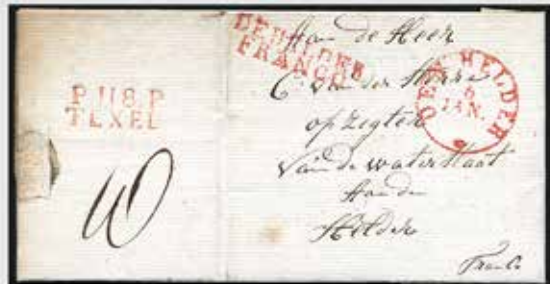 P.118.P
TEXEL
DEHELDER
FRANCO
DEN HELDER
6
JAN.
Aan de Heer
C van der
opzigter
Van de waterstaat
Aan den
Helder
Franco